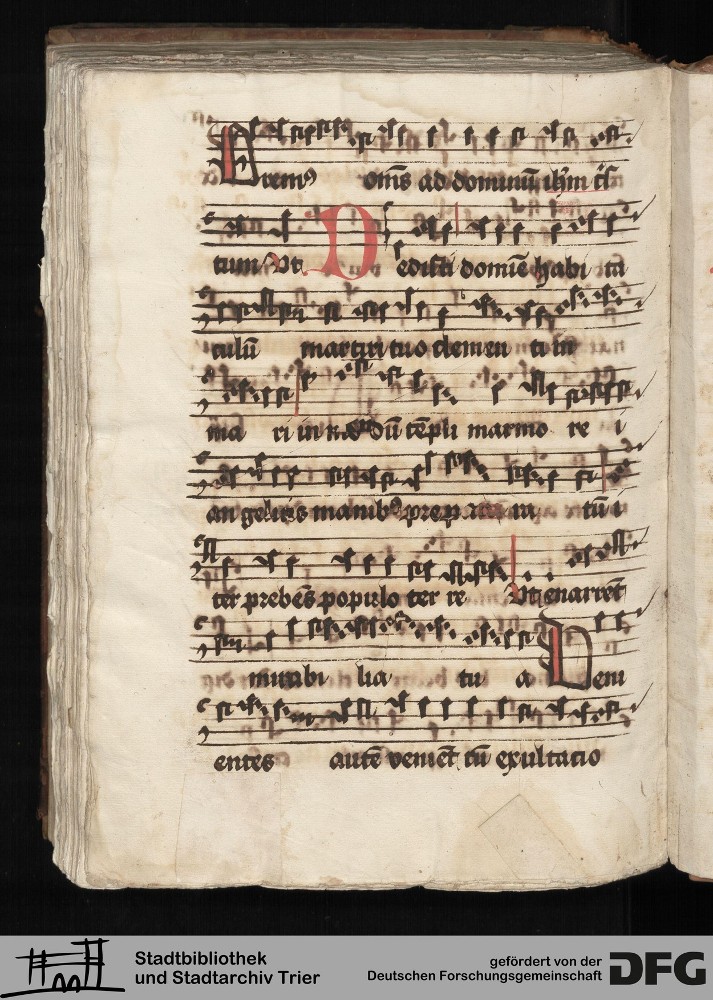 Orem⁹ om̄s ad dominū ihm̄
tum Vt Dedisti domīe habi ta
culū martiri tuo clemen ti in
ma ri in dū tēpli marmo re i
an gelicis manib⁹ prepara tū i
ter prebēs populo ter re Vt enarrēt
mirabi lia tu a Veni
entes autē veniēt cū exultatio
Stadtbibliothek
und Stadtarchiv Trier
gefördert von der
Deutschen Forschungsgemeinschaft
DFG